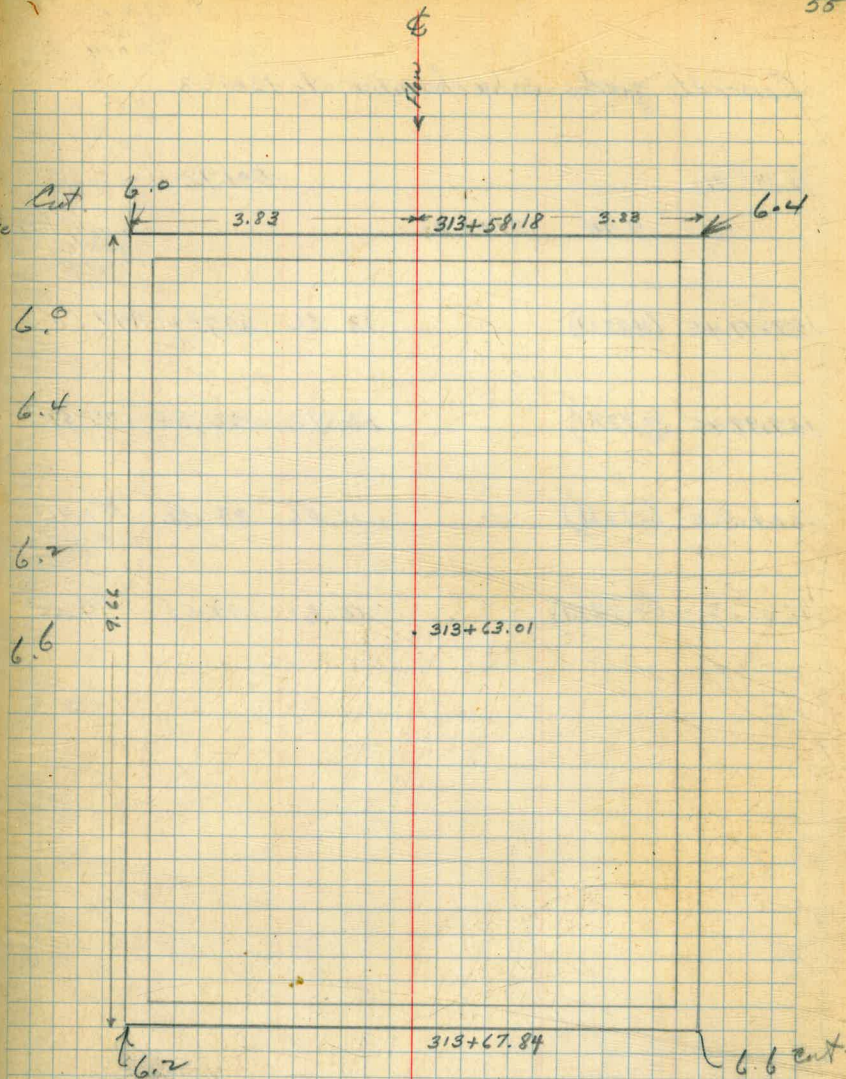 55
℄
Flow
Cut 6.0
3.83 313+58.18 3.83 6.4
6.0
6.4
6.2
9.66
313+63.01
6.6
313+67.84
6.2
6.6 cut